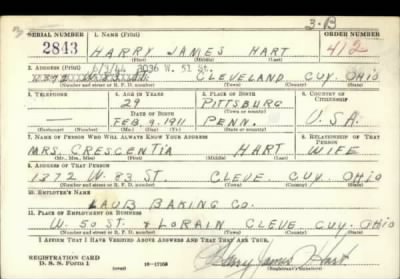 3-B
SERIAL NUMBER 1. NAME (Print) ORDER NUMBER
2843 HARRY JAMES HART 412
(First) (Middle) (Last)
2. ADDRESS (Print) 6/3/44 3036 W. 51 St.
CLEVELAND CUY. OHIO
(Number and street or R. F. D. number) (Town) (County) (State)
3. TELEPHONE 4. AGE IN YEARS 5. PLACE OF BIRTH 6. COUNTRY OF CITIZENSHIP
29 PITTSBURG
DATE OF BIRTH (Town or county)
— FEB. 9, 1911 PENN. U.S.A.
(Exchange) (No.) (Mo.) (Day) (Yr.) (State or country)
7. NAME OF PERSON WHO WILL ALWAYS KNOW YOUR ADDRESS 8. RELATIONSHIP OF THAT PERSON
MRS. CRESCENTIA HART WIFE
(Mr., Mrs., Miss) (First) (Middle) (Last)
9. ADDRESS OF THAT PERSON
1372 W. 83 ST. CLEVE CUY. OHIO
(Number and street or R. F. D. number) (Town) (County) (State)
10. EMPLOYER'S NAME
LAUB BAKING CO.
11. PLACE OF EMPLOYMENT OR BUSINESS
W. 50 ST. & LORAIN CLEVE CUY. OHIO
(Number and street or R. F. D. number) (Town) (County) (State)
I AFFIRM THAT I HAVE VERIFIED ABOVE ANSWERS AND THAT THEY ARE TRUE.
REGISTRATION CARD Harry James Hart
D. S. S. Form 1 (over) 16-17105 (Registrant's signature)